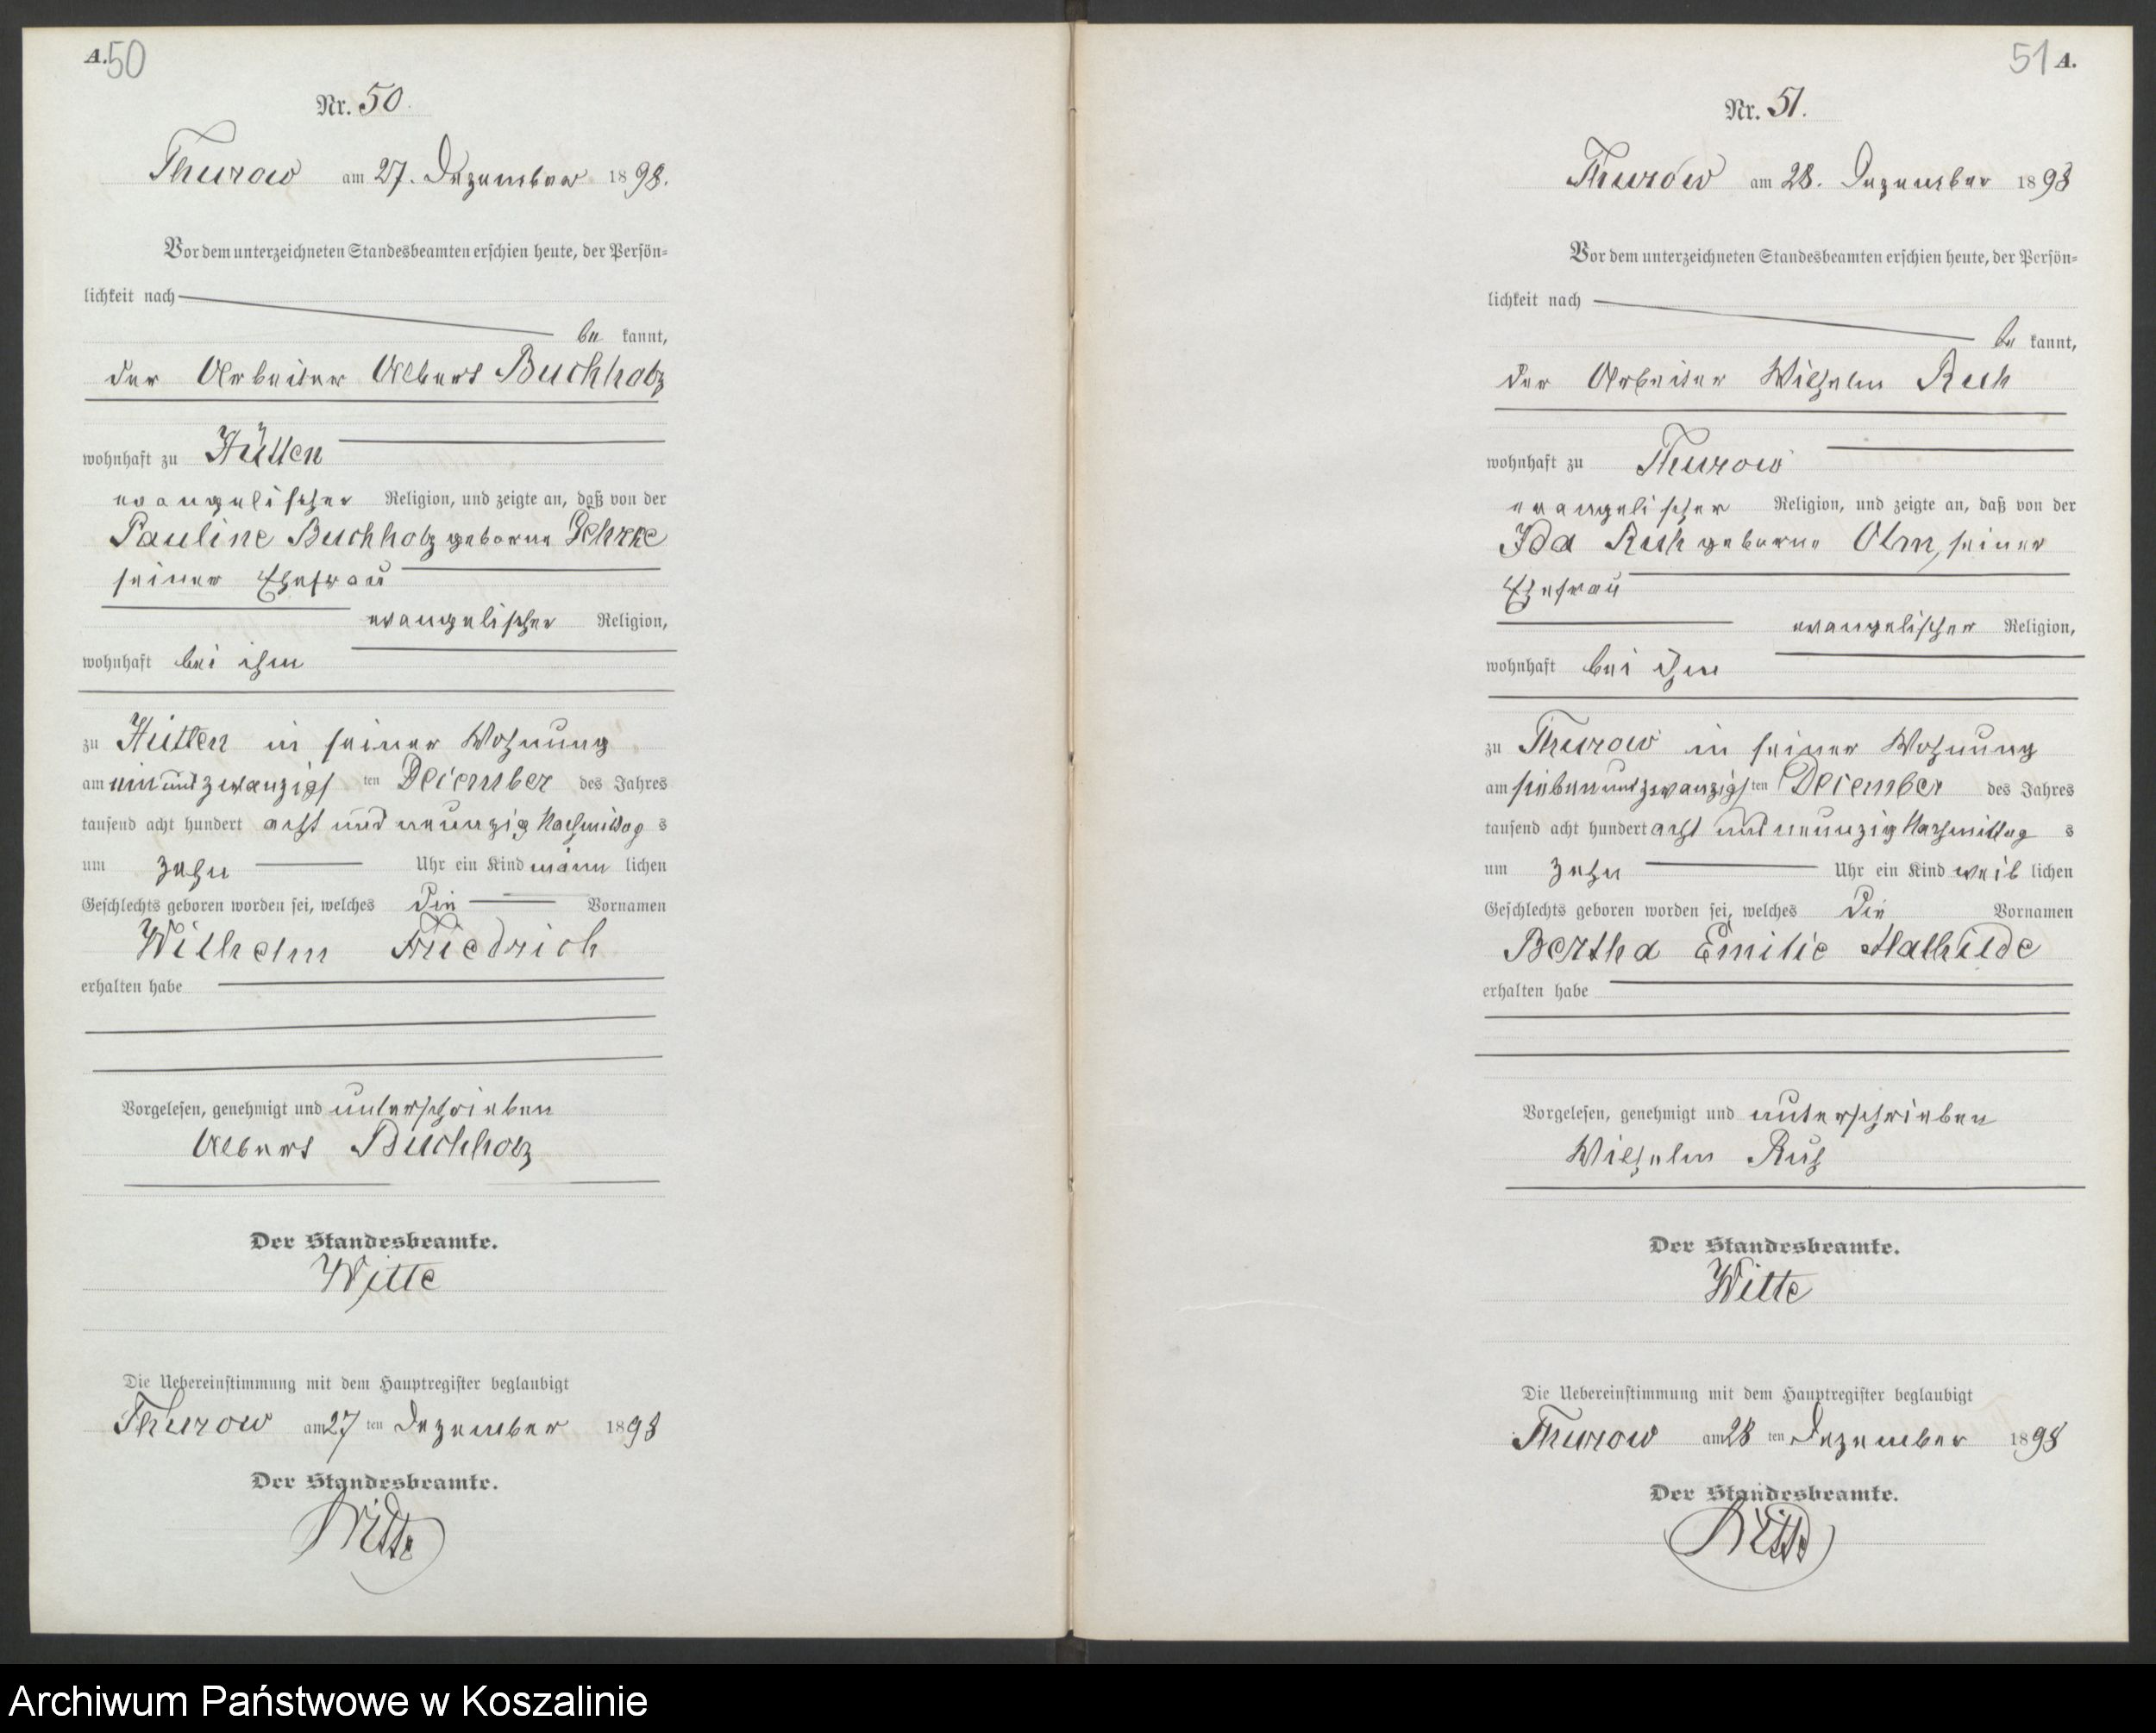 A. 50
Nr. 50.
Thurow am 27. Dezember 1898.
Vor dem unterzeichneten Standesbeamten erschien heute, der Persön-
lichkeit nach
be kannt,
der Arbeiter Albert Buchholz
wohnhaft zu Hütten
evangelischer Religion, und zeigte an, daß von der
Pauline Buchholz geborne Gehrke
seiner Ehefrau
evangelischer Religion,
wohnhaft bei ihm
zu Hütten in seiner Wohnung
am einundzwanzigs ten December des Jahres
tausend acht hundert acht und neunzig Nachmittag s
um zehn Uhr ein Kind männ lichen
Geschlechts geboren worden sei, welches die Vornamen
Wilhelm Friedrich
erhalten habe
Vorgelesen, genehmigt und unterschrieben
Albert Buchholz
Der Standesbeamte.
Witte
Die Uebereinstimmung mit dem Hauptregister beglaubigt
Thurow am 27 ten Dezember 1898
Der Standesbeamte.
Witte
51 A.
Nr. 51.
Thurow am 28. Dezember 1898
Vor dem unterzeichneten Standesbeamten erschien heute, der Persön-
lichkeit nach
be kannt,
der Arbeiter Wilhelm Ruh
wohnhaft zu Thurow
evangelischer Religion, und zeigte an, daß von der
Ida Ruh geborne Olm, seiner
Ehefrau
evangelischer Religion,
wohnhaft bei ihm
zu Thurow in seiner Wohnung
am siebenundzwanzigs ten December des Jahres
tausend acht hundert acht und neunzig Nachmittag s
um zehn Uhr ein Kind weib lichen
Geschlechts geboren worden sei, welches die Vornamen
Bertha Emilie Mathilde
erhalten habe
Vorgelesen, genehmigt und unterschrieben
Wilhelm Ruh
Der Standesbeamte.
Witte
Die Uebereinstimmung mit dem Hauptregister beglaubigt
Thurow am 28 ten Dezember 1898
Der Standesbeamte.
Witte
Archiwum Państwowe w Koszalinie